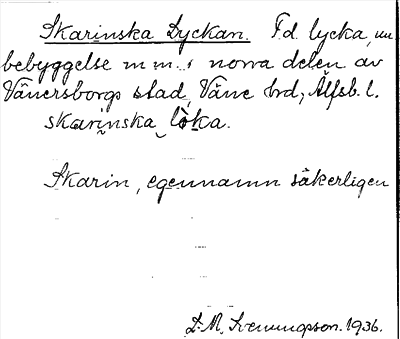 Skarinska Lyckan. F.d. lycka, nu
bebyggelse m.m. i norra delen av
Vänersborgs stad, Väne hrd, Älfsb. l.
skarinska lòka.
Skarin, egennamn säkerligen
D. M. Svenungsson. 1936.